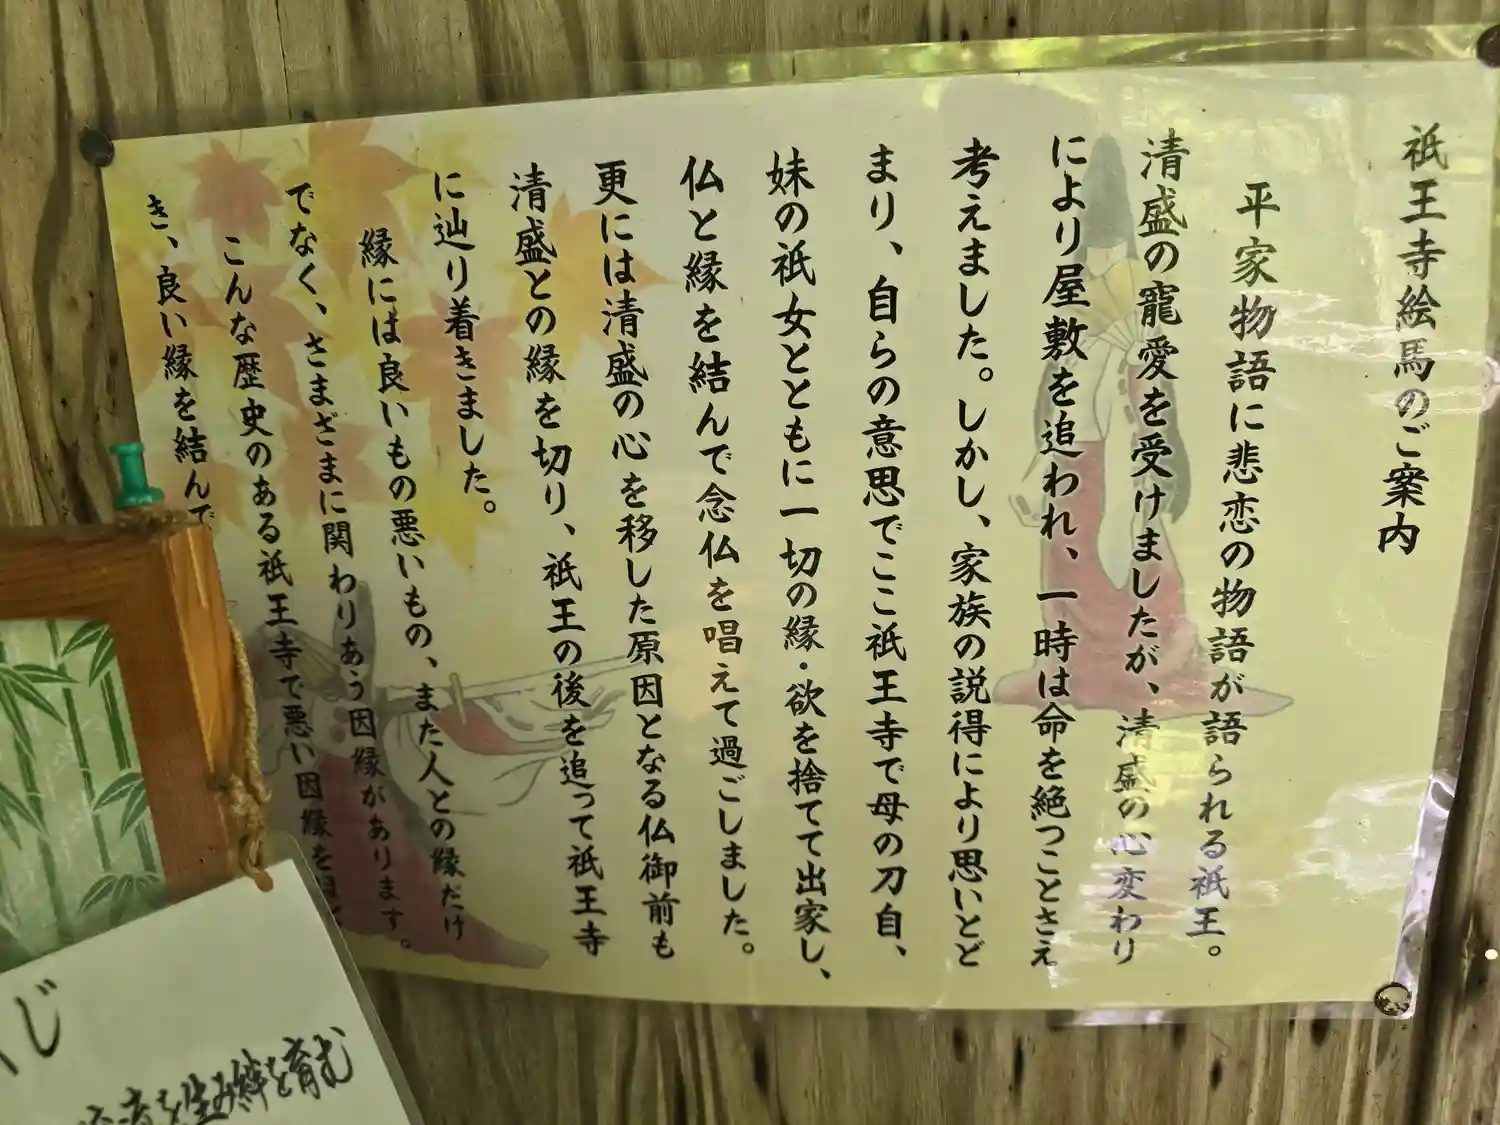 祇王寺絵馬のご案内
平家物語に悲恋の物語が語られる祇王。
清盛の寵愛を受けましたが、清盛の心変わり
により屋敷を追われ、一時は命を絶つことさえ
考えました。しかし、家族の説得により思いとど
まり、自らの意思でここ祇王寺で母の刀自、
妹の祇女とともに一切の縁・欲を捨てて出家し、
仏と縁を結んで念仏を唱えて過ごしました。
更には清盛の心を移した原因となる仏御前も
清盛との縁を切り、祇王の後を追って祇王寺
に辿り着きました。
縁には良いもの悪いもの、また人との縁だけ
でなく、さまざまに関わりあう因縁があります。
こんな歴史のある祇王寺で悪い因縁を
き、良い縁を結んで
じ
を生み絆を育む